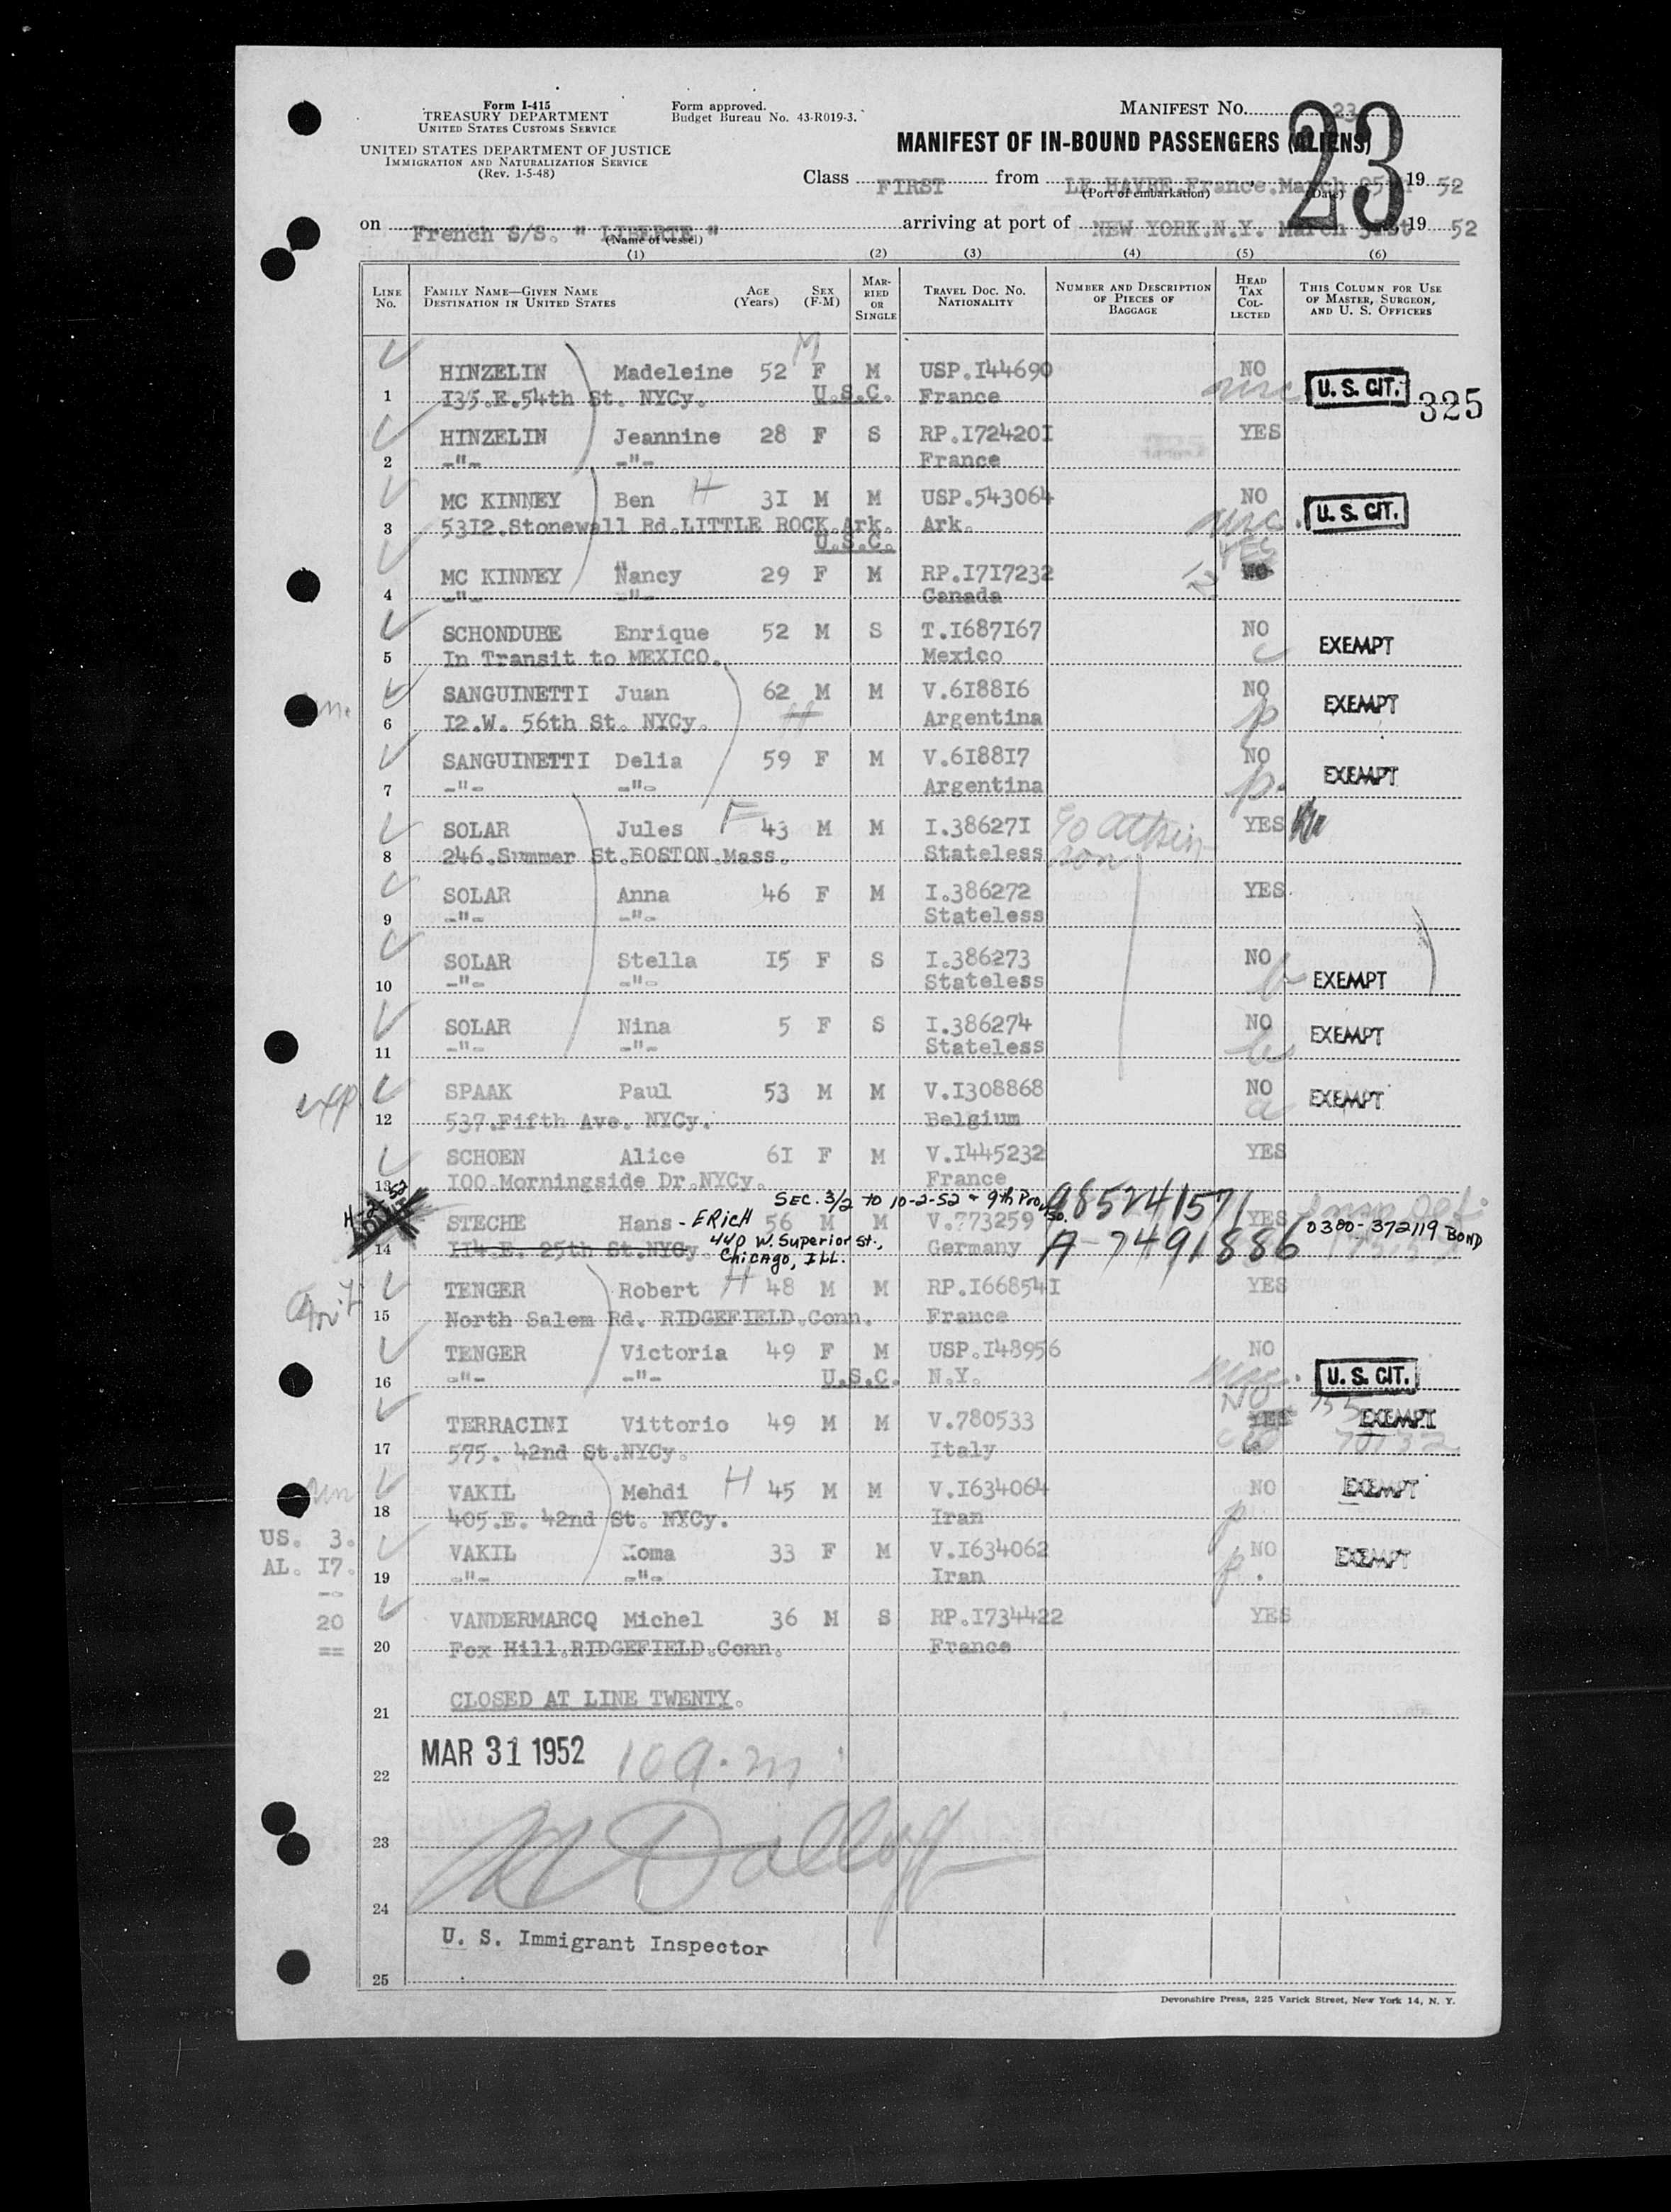 Form I-415
TREASURY DEPARTMENT
UNITED STATES CUSTOMS SERVICE
UNITED STATES DEPARTMENT OF JUSTICE
IMMIGRATION AND NATURALIZATION SERVICE
(Rev. 1-5-48)
Form approved.
Budget Bureau No. 43-R019-3.
MANIFEST NO. 23
23
MANIFEST OF IN-BOUND PASSENGERS (ALIENS)
Class FIRST from LE HAVRE.France. March 25 19 52
(Port of embarkation) (Date)
on French S/S. " LIBERTE " arriving at port of NEW YORK.N.Y. March 31st 19 52
(Name of vessel)
(1) (2) (3) (4) (5) (6)
LINE No. FAMILY NAME—GIVEN NAME DESTINATION IN UNITED STATES AGE (Years) SEX (F-M) MARRIED OR SINGLE TRAVEL DOC. NO. NATIONALITY NUMBER AND DESCRIPTION OF PIECES OF BAGGAGE HEAD TAX COLLECTED THIS COLUMN FOR USE OF MASTER, SURGEON, AND U. S. OFFICERS
M
HINZELIN Madeleine 52 F M USP.I44690 NO
1 I35.E.54th St. NYCy. U.S.C. France U. S. CIT. 325
HINZELIN Jeannine 28 F S RP.I72420I YES
2 -"- -"- France
MC KINNEY Ben H 3I M M USP.543064 NO
3 53I2.Stonewall Rd.LITTLE ROCK.Ark. Ark. U. S. CIT.
U.S.C. YES
MC KINNEY Nancy 29 F M RP.I7I7232 NO
4 -"- -"- Canada
SCHONDUBE Enrique 52 M S T.I687I67 NO
5 In Transit to MEXICO. Mexico c EXEMPT
SANGUINETTI Juan 62 M M V.6I88I6 NO
6 I2.W. 56th St. NYCy. H Argentina p EXEMPT
SANGUINETTI Delia 59 F M V.6I88I7 NO
7 -"- -"- Argentina p. EXEMPT
SOLAR Jules F 43 M M I.38627I YES
8 246.Summer St.BOSTON.Mass. Stateless
SOLAR Anna 46 F M I.386272 YES
9 -"- -"- Stateless
SOLAR Stella I5 F S I.386273 NO
10 -"- -"- Stateless b EXEMPT
SOLAR Nina 5 F S I.386274 NO
11 -"- -"- Stateless EXEMPT
SPAAK Paul 53 M M V.I308868 NO
12 537.Fifth Ave. NYCy. Belgium a EXEMPT
SCHOEN Alice 6I F M V.I445232 YES
13 I00.Morningside Dr.NYCy. France
SEC. 3/2 TO 10-2-52 & 9th Pro. 985241571
STECHE Hans - ERICH 56 M M V.773259 YES
14 II4.E. 25th St.NYCy. 440 W. Superior St., Germany A-7491886 0300-372119 BOND
Chicago, ILL.
TENGER Robert H 48 M M RP.I66854I YES
15 North Salem Rd. RIDGEFIELD.Conn. France
TENGER Victoria 49 F M USP.I48956 NO
16 -"- -"- U.S.C. N.Y. U. S. CIT.
NO
TERRACINI Vittorio 49 M M V.780533 YES EXEMPT
17 575. 42nd St.NYCy. Italy
VAKIL Mehdi H 45 M M V.I634064 NO EXEMPT
18 405.E. 42nd St. NYCy. Iran p
US. 3.
VAKIL Homa 33 F M V.I634062 NO EXEMPT
AL. I7.
19 -"- -"- Iran p.
VANDERMARCQ Michel 36 M S RP.I734422 YES
20
20 Fox Hill.RIDGEFIELD.Conn. France
==
CLOSED AT LINE TWENTY.
21
MAR 31 1952 10 a.m
22
23
24
U. S. Immigrant Inspector
25
Devonshire Press, 225 Varick Street, New York 14, N. Y.